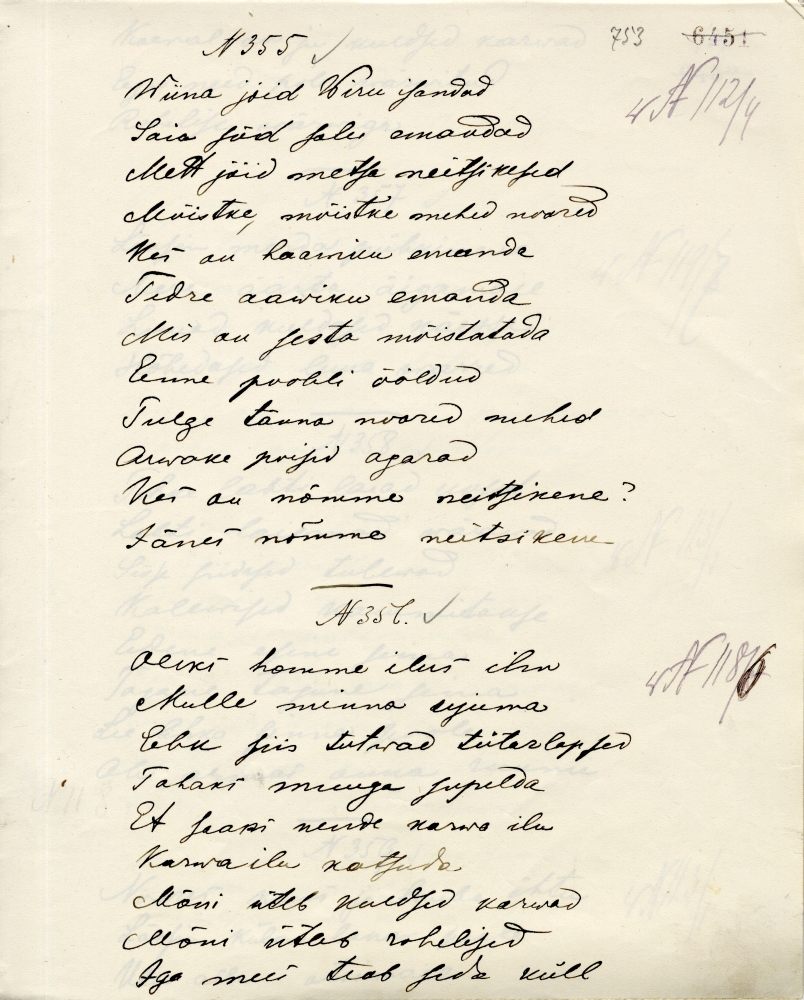 N 355
753 6451
Wiina jõid Wiru isandad
w N 112/4
Saia sõid salu emandad
Mett jõid metsa neitsikesed
Mõistke, mõistke mehed noored
Kes on haawiku emanda
Tedre aawiku emanda
Mis on sesta mõistatada
Enne pooleli ööldud
Tulge tänna noored mehed
Arwake poisid agarad
Kes on nõmme neitsikene?
Jänes nõmme neitsikene
N 356.
Oleks homme ilus ilm
w N 118/6
Mulle minna ujuma
Eehk siis tulwad tütarlapsed
Tahaks muuga supelda
Et saaks nende karwa ilu
Karwa ilu katsuda
Mõni ütleb kuldsed karwad
Mõni ütleb rohelised
Iga mees teab seda küll